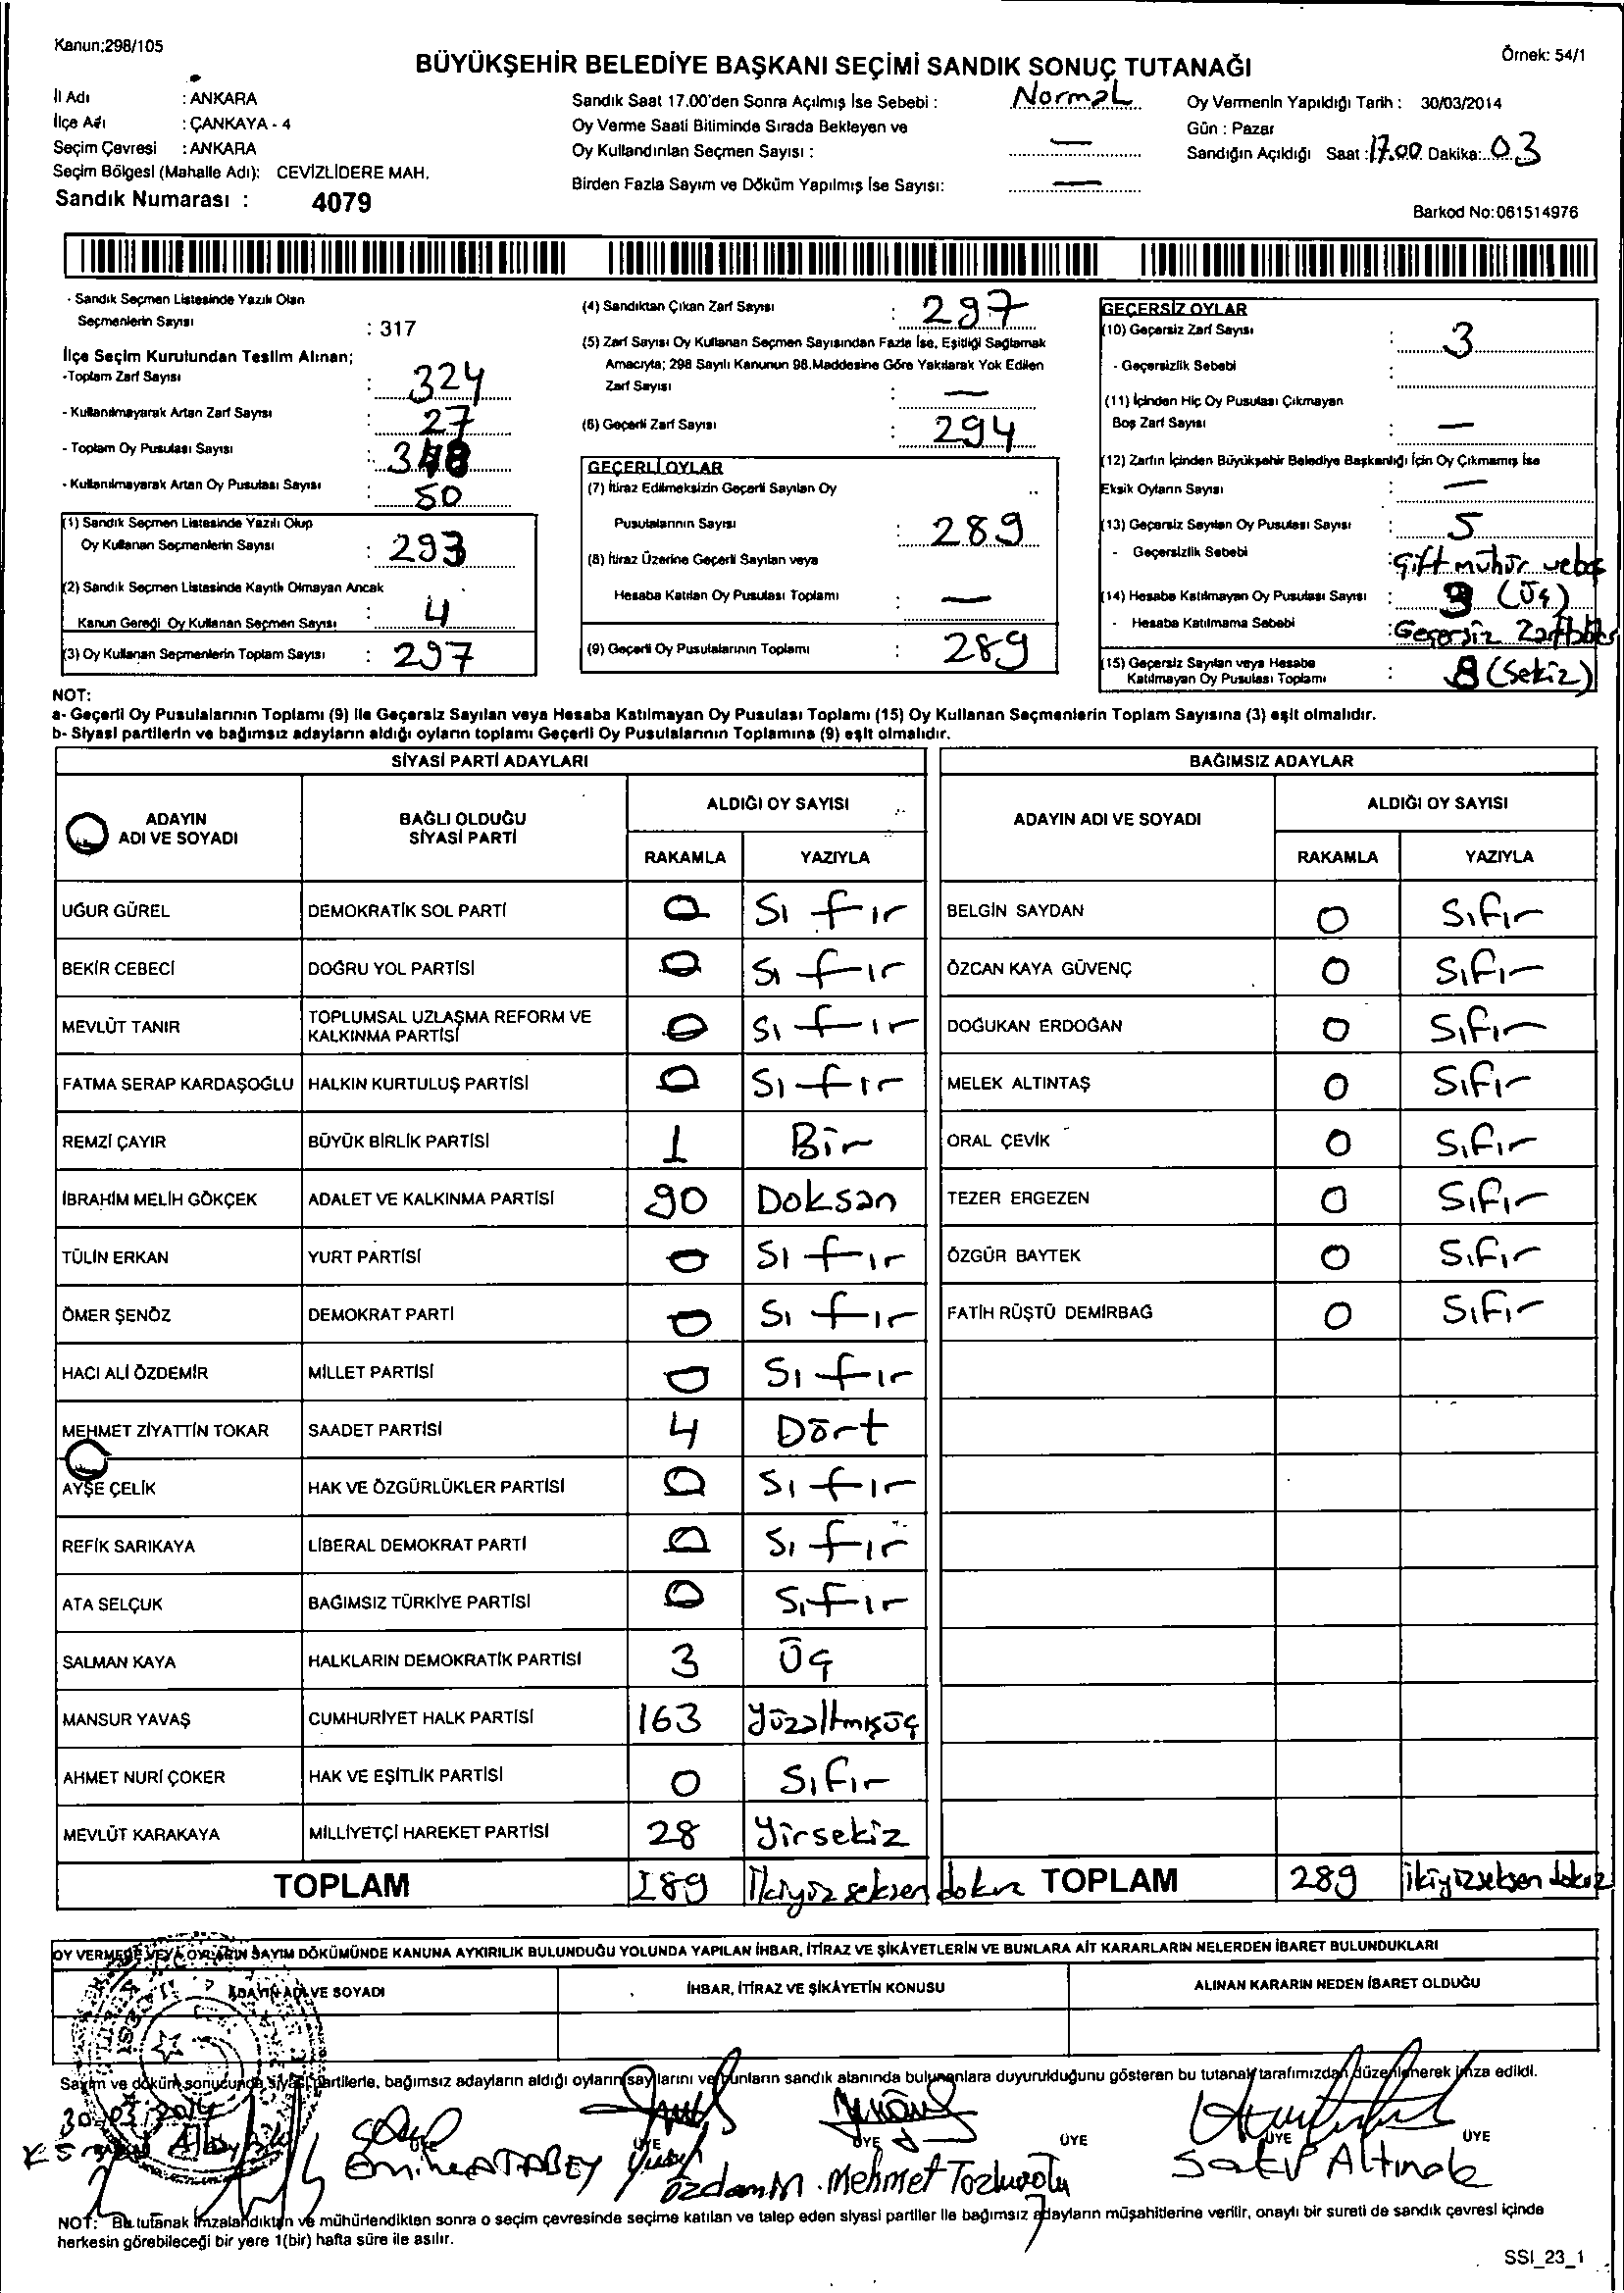 Kanun:298/105
BÜYÜKŞEHİR BELEDİYE BAŞKANI SEÇİMİ SANDIK SONUÇ TUTANAĞI
Örnek: 54/1
İl Adı : ANKARA
İlçe Adı : ÇANKAYA - 4
Seçim Çevresi : ANKARA
Seçim Bölgesi (Mahalle Adı): CEVİZLİDERE MAH.
Sandık Numarası : 4079
Sandık Saat 17.00'den Sonra Açılmış İse Sebebi : Normal
Oy Verme Saati Bitiminde Sırada Bekleyen ve
Oy Kullandırılan Seçmen Sayısı : —
Birden Fazla Sayım ve Döküm Yapılmış İse Sayısı: —
Oy Vermenin Yapıldığı Tarih : 30/03/2014
Gün : Pazar
Sandığın Açıldığı Saat :17.00 Dakika: 03
Barkod No:061514976
- Sandık Seçmen Listesinde Yazılı Olan
Seçmenlerin Sayısı : 317
İlçe Seçim Kurulundan Teslim Alınan;
-Toplam Zarf Sayısı : 324
- Kullanılmayarak Artan Zarf Sayısı : 27
- Toplam Oy Pusulası Sayısı :
- Kullanılmayarak Artan Oy Pusulası Sayısı : 50
(1) Sandık Seçmen Listesinde Yazılı Olup
Oy Kullanan Seçmenlerin Sayısı : 293
(2) Sandık Seçmen Listesinde Kayıtlı Olmayan Ancak
Kanun Gereği Oy Kullanan Seçmen Sayısı : 4
(3) Oy Kullanan Seçmenlerin Toplam Sayısı : 297
(4) Sandıktan Çıkan Zarf Sayısı : 297
(5) Zarf Sayısı Oy Kullanan Seçmen Sayısından Fazla İse, Eşitliği Sağlamak
Amacıyla; 298 Sayılı Kanunun 98.Maddesine Göre Yakılarak Yok Edilen
Zarf Sayısı : —
(6) Geçerli Zarf Sayısı : 294
GEÇERLİ OYLAR
(7) İtiraz Edilmeksizin Geçerli Sayılan Oy
Pusulalarının Sayısı : 289
(8) İtiraz Üzerine Geçerli Sayılan veya
Hesaba Katılan Oy Pusulası Toplamı : —
(9) Geçerli Oy Pusulalarının Toplamı : 289
GEÇERSİZ OYLAR
(10) Geçersiz Zarf Sayısı : 3
- Geçersizlik Sebebi :
(11) İçinden Hiç Oy Pusulası Çıkmayan
Boş Zarf Sayısı : —
(12) Zarfın İçinden Büyükşehir Belediye Başkanlığı İçin Oy Çıkmamış İse
Eksik Oyların Sayısı : —
(13) Geçersiz Sayılan Oy Pusulası Sayısı : 5
- Geçersizlik Sebebi : Çift mühür ve boş
(14) Hesaba Katılmayan Oy Pusulası Sayısı : 3 (Üç)
- Hesaba Katılmama Sebebi : Geçersiz
(15) Geçersiz Sayılan veya Hesaba
Katılmayan Oy Pusulası Toplamı : 8 (Sekiz)
NOT:
a- Geçerli Oy Pusulalarının Toplamı (9) ile Geçersiz Sayılan veya Hesaba Katılmayan Oy Pusulası Toplamı (15) Oy Kullanan Seçmenlerin Toplam Sayısına (3) eşit olmalıdır.
b- Siyasi partilerin ve bağımsız adayların aldığı oyların toplamı Geçerli Oy Pusulalarının Toplamına (9) eşit olmalıdır.
SİYASİ PARTİ ADAYLARI
BAĞIMSIZ ADAYLAR
ADAYIN ADI VE SOYADI BAĞLI OLDUĞU SİYASİ PARTİ ALDIĞI OY SAYISI ADAYIN ADI VE SOYADI ALDIĞI OY SAYISI
RAKAMLA YAZIYLA RAKAMLA YAZIYLA
UĞUR GÜREL DEMOKRATİK SOL PARTİ 0 Sıfır BELGİN SAYDAN 0 Sıfır
BEKİR CEBECİ DOĞRU YOL PARTİSİ 0 Sıfır ÖZCAN KAYA GÜVENÇ 0 Sıfır
MEVLÜT TANIR TOPLUMSAL UZLAŞMA REFORM VE KALKINMA PARTİSİ 0 Sıfır DOĞUKAN ERDOĞAN 0 Sıfır
FATMA SERAP KARDAŞOĞLU HALKIN KURTULUŞ PARTİSİ 0 Sıfır MELEK ALTINTAŞ 0 Sıfır
REMZİ ÇAYIR BÜYÜK BİRLİK PARTİSİ 1 Bir ORAL ÇEVİK 0 Sıfır
İBRAHİM MELİH GÖKÇEK ADALET VE KALKINMA PARTİSİ 90 Doksan TEZER ERGEZEN 0 Sıfır
TÜLİN ERKAN YURT PARTİSİ 0 Sıfır ÖZGÜR BAYTEK 0 Sıfır
ÖMER ŞENÖZ DEMOKRAT PARTİ 0 Sıfır FATİH RÜŞTÜ DEMİRBAĞ 0 Sıfır
HACI ALİ ÖZDEMİR MİLLET PARTİSİ 0 Sıfır
MEHMET ZİYATTİN TOKAR SAADET PARTİSİ 4 Dört
AYŞE ÇELİK HAK VE ÖZGÜRLÜKLER PARTİSİ 0 Sıfır
REFİK SARIKAYA LİBERAL DEMOKRAT PARTİ 0 Sıfır
ATA SELÇUK BAĞIMSIZ TÜRKİYE PARTİSİ 0 Sıfır
SALMAN KAYA HALKLARIN DEMOKRATİK PARTİSİ 3 Üç
MANSUR YAVAŞ CUMHURİYET HALK PARTİSİ 163 Yüzaltmışüç
AHMET NURİ ÇOKER HAK VE EŞİTLİK PARTİSİ 0 Sıfır
MEVLÜT KARAKAYA MİLLİYETÇİ HAREKET PARTİSİ 28 Yirsekiz
TOPLAM 289 İkiyüz seksen dokuz TOPLAM 289 ikiyüzseksen dokuz
OY VERMEDE VEYA OYLARIN SAYIM DÖKÜMÜNDE KANUNA AYKIRILIK BULUNDUĞU YOLUNDA YAPILAN İHBAR, İTİRAZ VE ŞİKÂYETLERİN VE BUNLARA AİT KARARLARIN NELERDEN İBARET BULUNDUKLARI
ADAYIN ADI VE SOYADI İHBAR, İTİRAZ VE ŞİKÂYETİN KONUSU ALINAN KARARIN NEDEN İBARET OLDUĞU
Sayım ve döküm sonucunda siyasi partilerle, bağımsız adayların aldığı oyların sayılarını ve bunların sandık alanında bulunanlara duyurulduğunu gösteren bu tutanak tarafımızdan düzenlenerek imza edildi.
30.03.2014
ÜYE ÜYE ÜYE ÜYE ÜYE ÜYE
Emine ATABEY Yusuf Özdamar Mehmet Tozluoğlu Altınok
NOT: Bu tutanak imzalandıktan ve mühürlendikten sonra o seçim çevresinde seçime katılan ve talep eden siyasi partiler ile bağımsız adayların müşahitlerine verilir, onaylı bir sureti de sandık çevresi içinde
herkesin görebileceği bir yere 1(bir) hafta süre ile asılır.
SSI_23_1